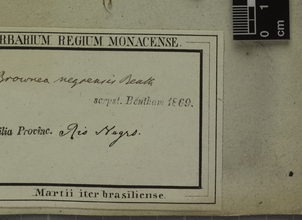 RBARIUM REGIUM MONACENSE.
Brownea negrensis Benth
scrpst. Bentham 1869.
ilia Provinc. Rio Negro.
Martii iter brasiliense.
0
1
cm